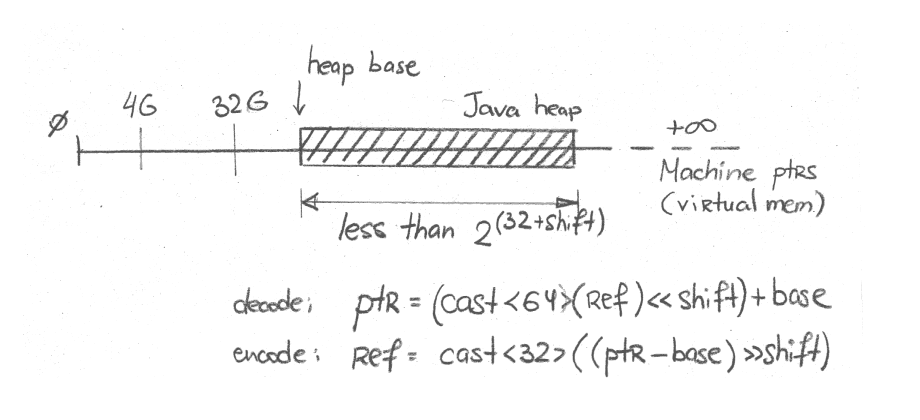 heap base
4G 32G Java heap
0 +∞
Machine ptrs
(virtual mem.)
less than 2^(32+shift)
decode: ptr = (cast<64>(Ref) << shift) + base
encode: Ref = cast<32>((ptr-base) >> shift)